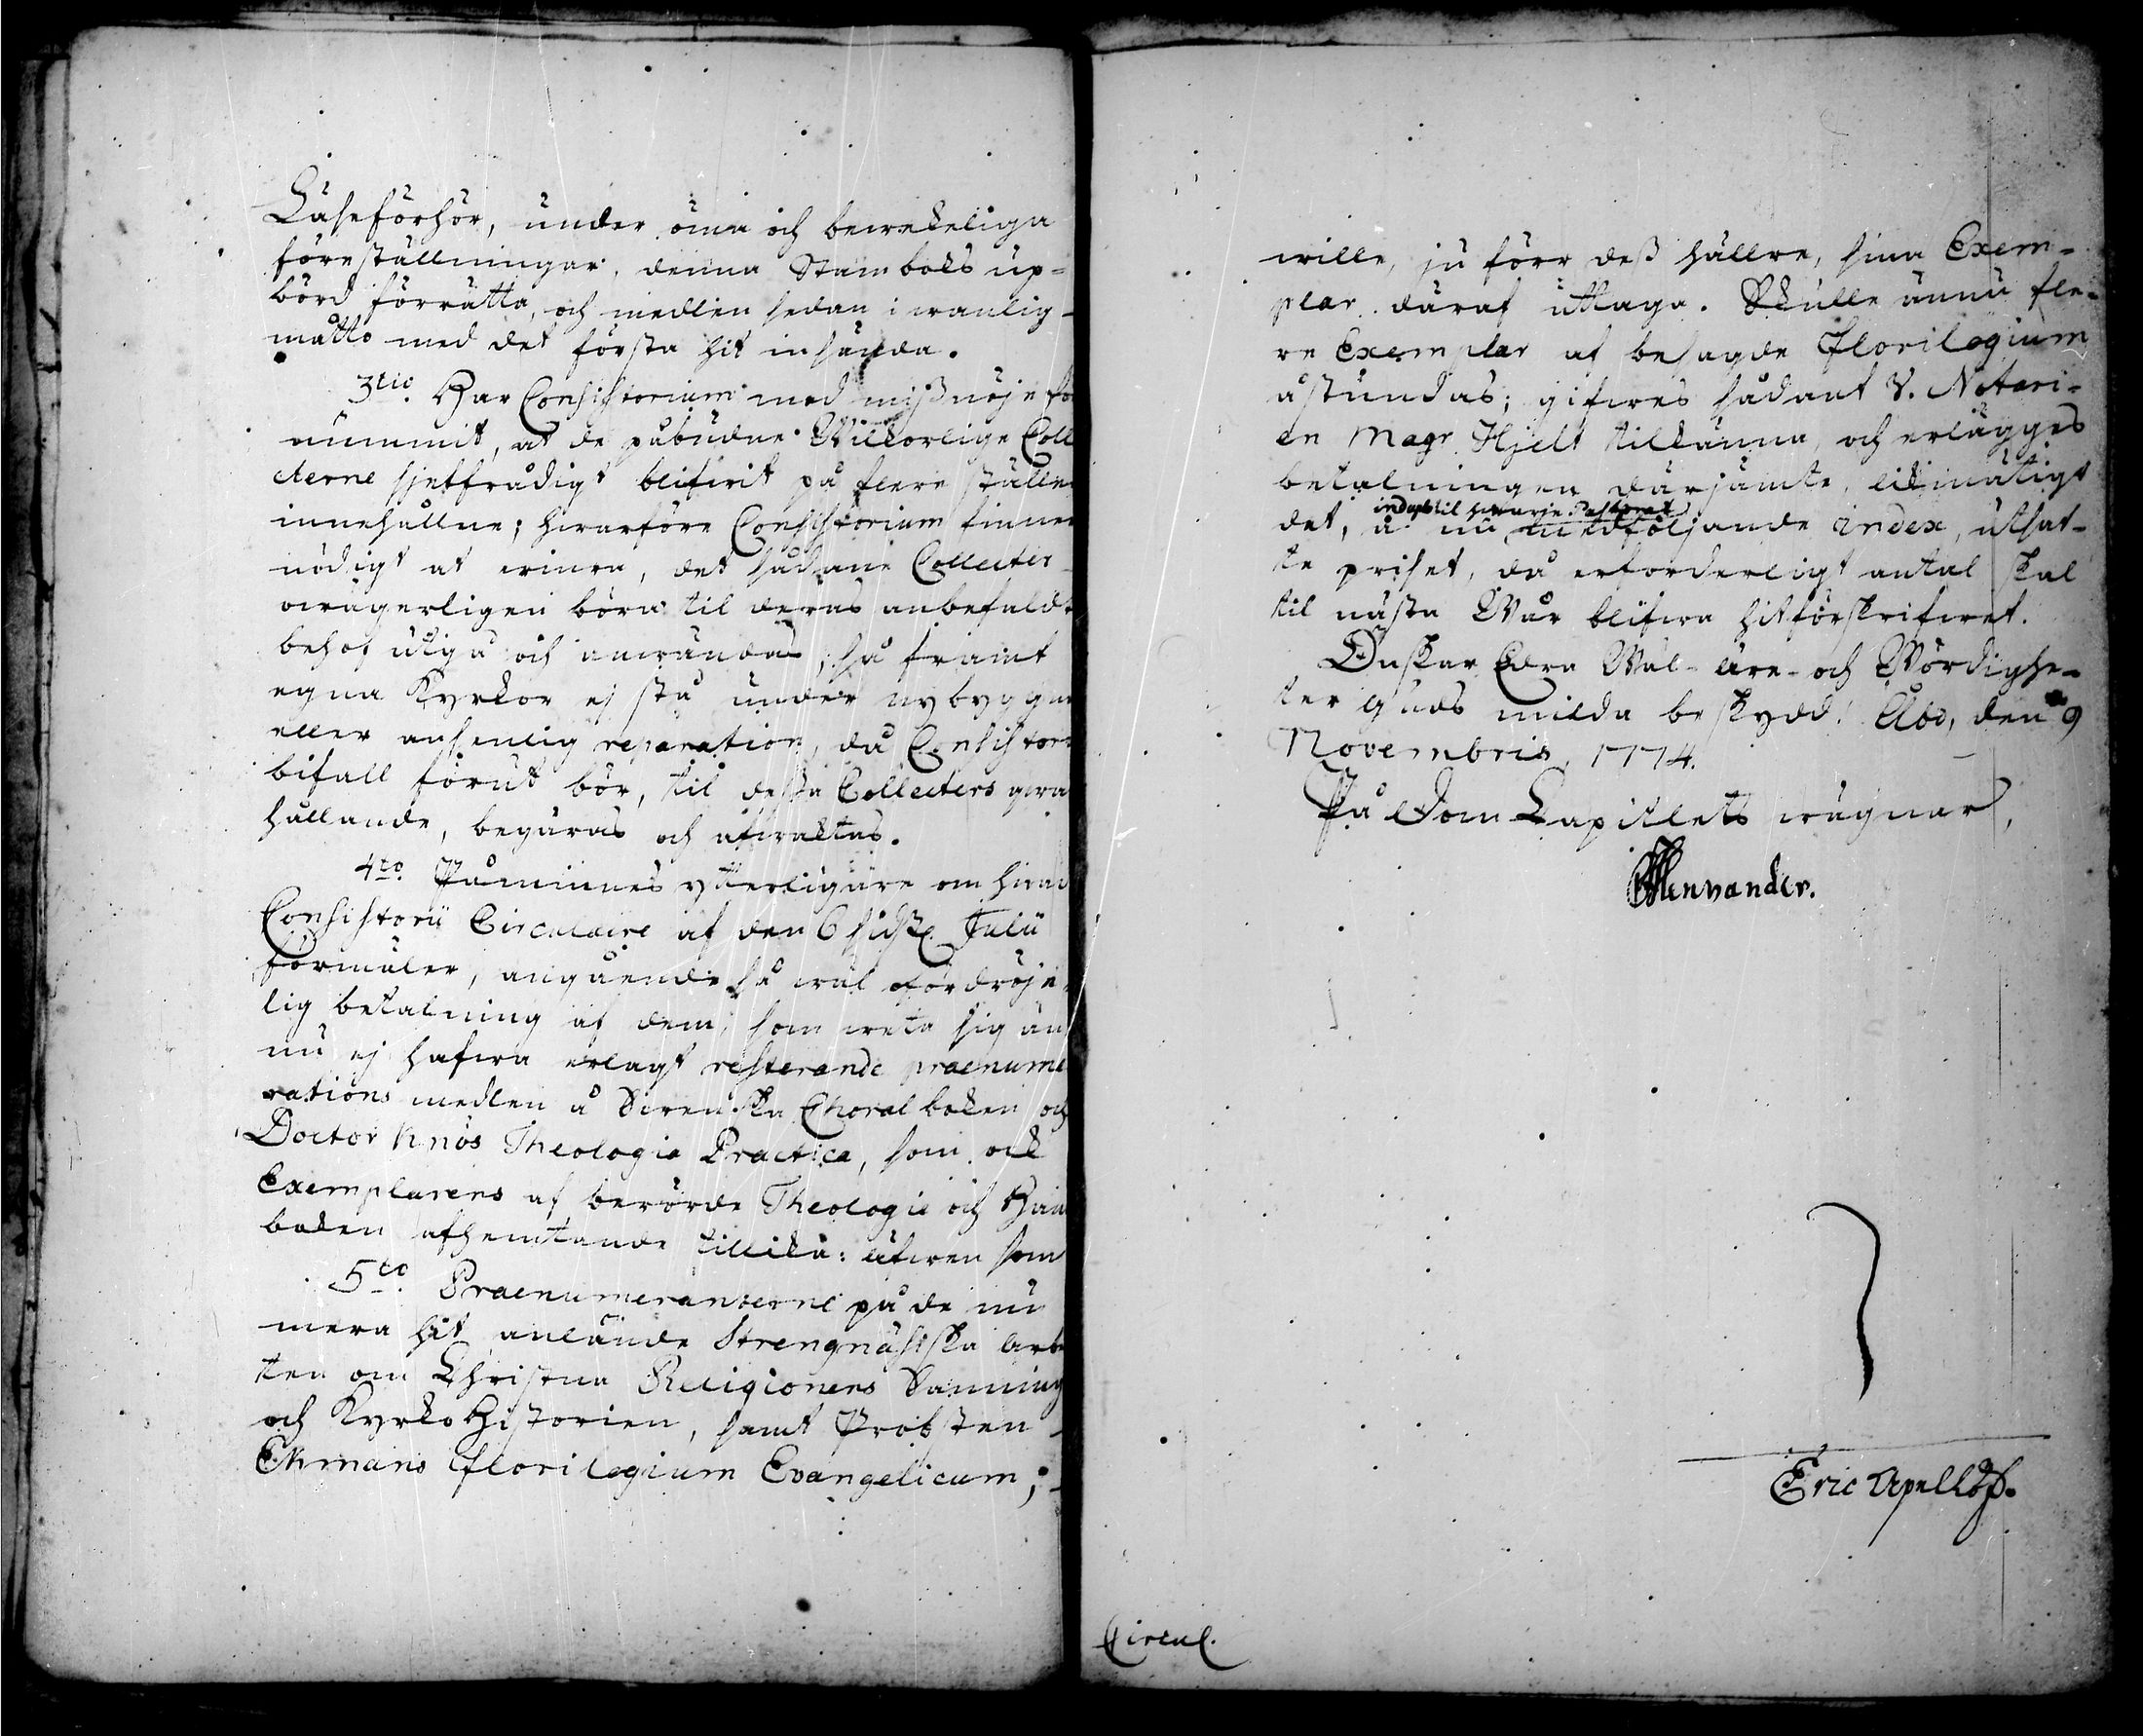 Läseförhör, under öma och bewekeliga
föreställningar, denna Stamboks up-
börd förrätta, och medlen sedan i wanlig-
måtto med det första hit insända.
3tio. Har Consistorium med missnöje för
nummit, at de påbudne Wilkorlige Coll
cterne sjelfrådigt blifwit på flere ställen
innehållne; hwarföre Consistorium finner
nödigt at erinra, det sådane Collecter
owägerligen böra til deras anbefaldte
behof utgå och användas, så framt
egna Kyrkor ej stå under nybyggna
eller ansenlig reparation, då Consistorii
bifall förut bör, til dessa Collecters qwar
hållande, begäras och afwaktas.
4to. Påminnes ytterligare om hwad
Consistorii Circulaire af den 6 sidstl. Julii
förmäler, angående så wäl ofördröje-
lig betalning af dem, som weta sig än
nu ej hafwa erlagt resterande praenume
rations medlen å Swenska Choral boken och
Doctor Knös Theologia Practica, som ock
Exemplarens af berörde Theologie och Han
boken afhemtande tillika: äfwen som
5to. Praenumeranterne på de nu
mera hit anlände Strengnäsiska Arbe
ten om Christna Religionens Sanning
och Kyrko Historien, samt Probsten
Ekmans Florilegium Evangelicum;
wille, ju förr dess hällre, sina Exem-
plar däraf uttaga. Skulle ännu fle-
re Exemplar af besagde Florilegium
åstundas; gifwes sådant V. Notari-
en Magr. Hjelt tillkänna, och erlägges
betalningen därjämte, likmätigt
det, å nu medföljande index, utsat-
til hwarje Pastorat
te priset, då erforderligt antal skal
til nästa Wår blifwa hitförskrifwet.
Önskar Edra Wäl- äre- och Wördighe-
ter Guds milda beskydd! Åbo, den 9
Novembris, 1774.
På Dom Capitlets wägnar,
Mennander.
Eric Apelhof.
Circul.